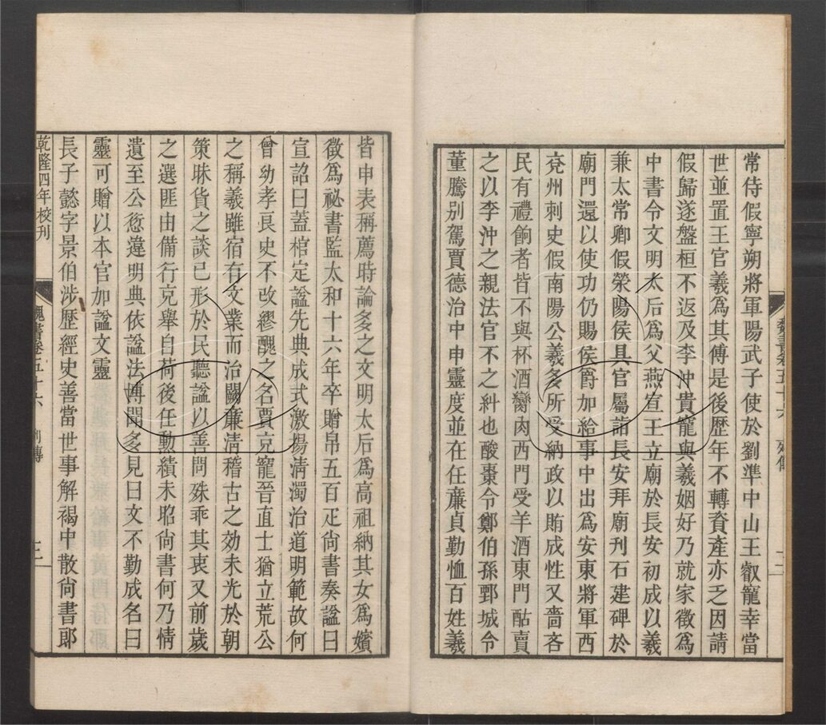 常侍假寧朔將軍陽武子使於劉準中山王叡寵幸當
世並置王官羲爲其傅是後歷年不轉資產亦乏因請
假歸遂盤桓不返及李沖貴寵與羲姻好乃就家徵爲
中書令文明太后爲父燕宣王立廟於長安初成以羲
兼太常卿假滎陽侯具官屬詣長安拜廟刊石建碑於
廟門還以使功仍賜侯爵加給事中出爲安東將軍西
兗州刺史假南陽公羲多所受納政以賄成性又嗇吝
民有禮餉者皆不與杯酒臠肉西門受羊酒東門酤賣
之以李沖之親法官不之糾也酸棗令鄭伯孫鄄城令
董騰別駕賈德治中申靈度並在任廉貞勤恤百姓羲
皆申表稱薦時論多之文明太后爲高祖納其女爲嬪
徵爲祕書監太和十六年卒贈帛五百疋尚書奏諡曰
宣詔曰蓋棺定諡先典成式激揚清濁治道明範故何
曾幼孝良史不改繆醜之名賈充寵晉直士猶立荒公
之稱羲雖宿有文業而治闕廉清稽古之効未光於朝
策昧貨之談已形於民聽諡以善問殊乖其衷又前歲
之選匪由備行充舉自荷後任勳績未昭尚書何乃情
遺至公愆違明典依諡法博聞多見曰文不勤成名曰
靈可贈以本官加諡文靈
長子懿字景伯涉歷經史善當世事解褐中散尚書郎
乾隆四年校刊
魏書卷五十六 列傳 三